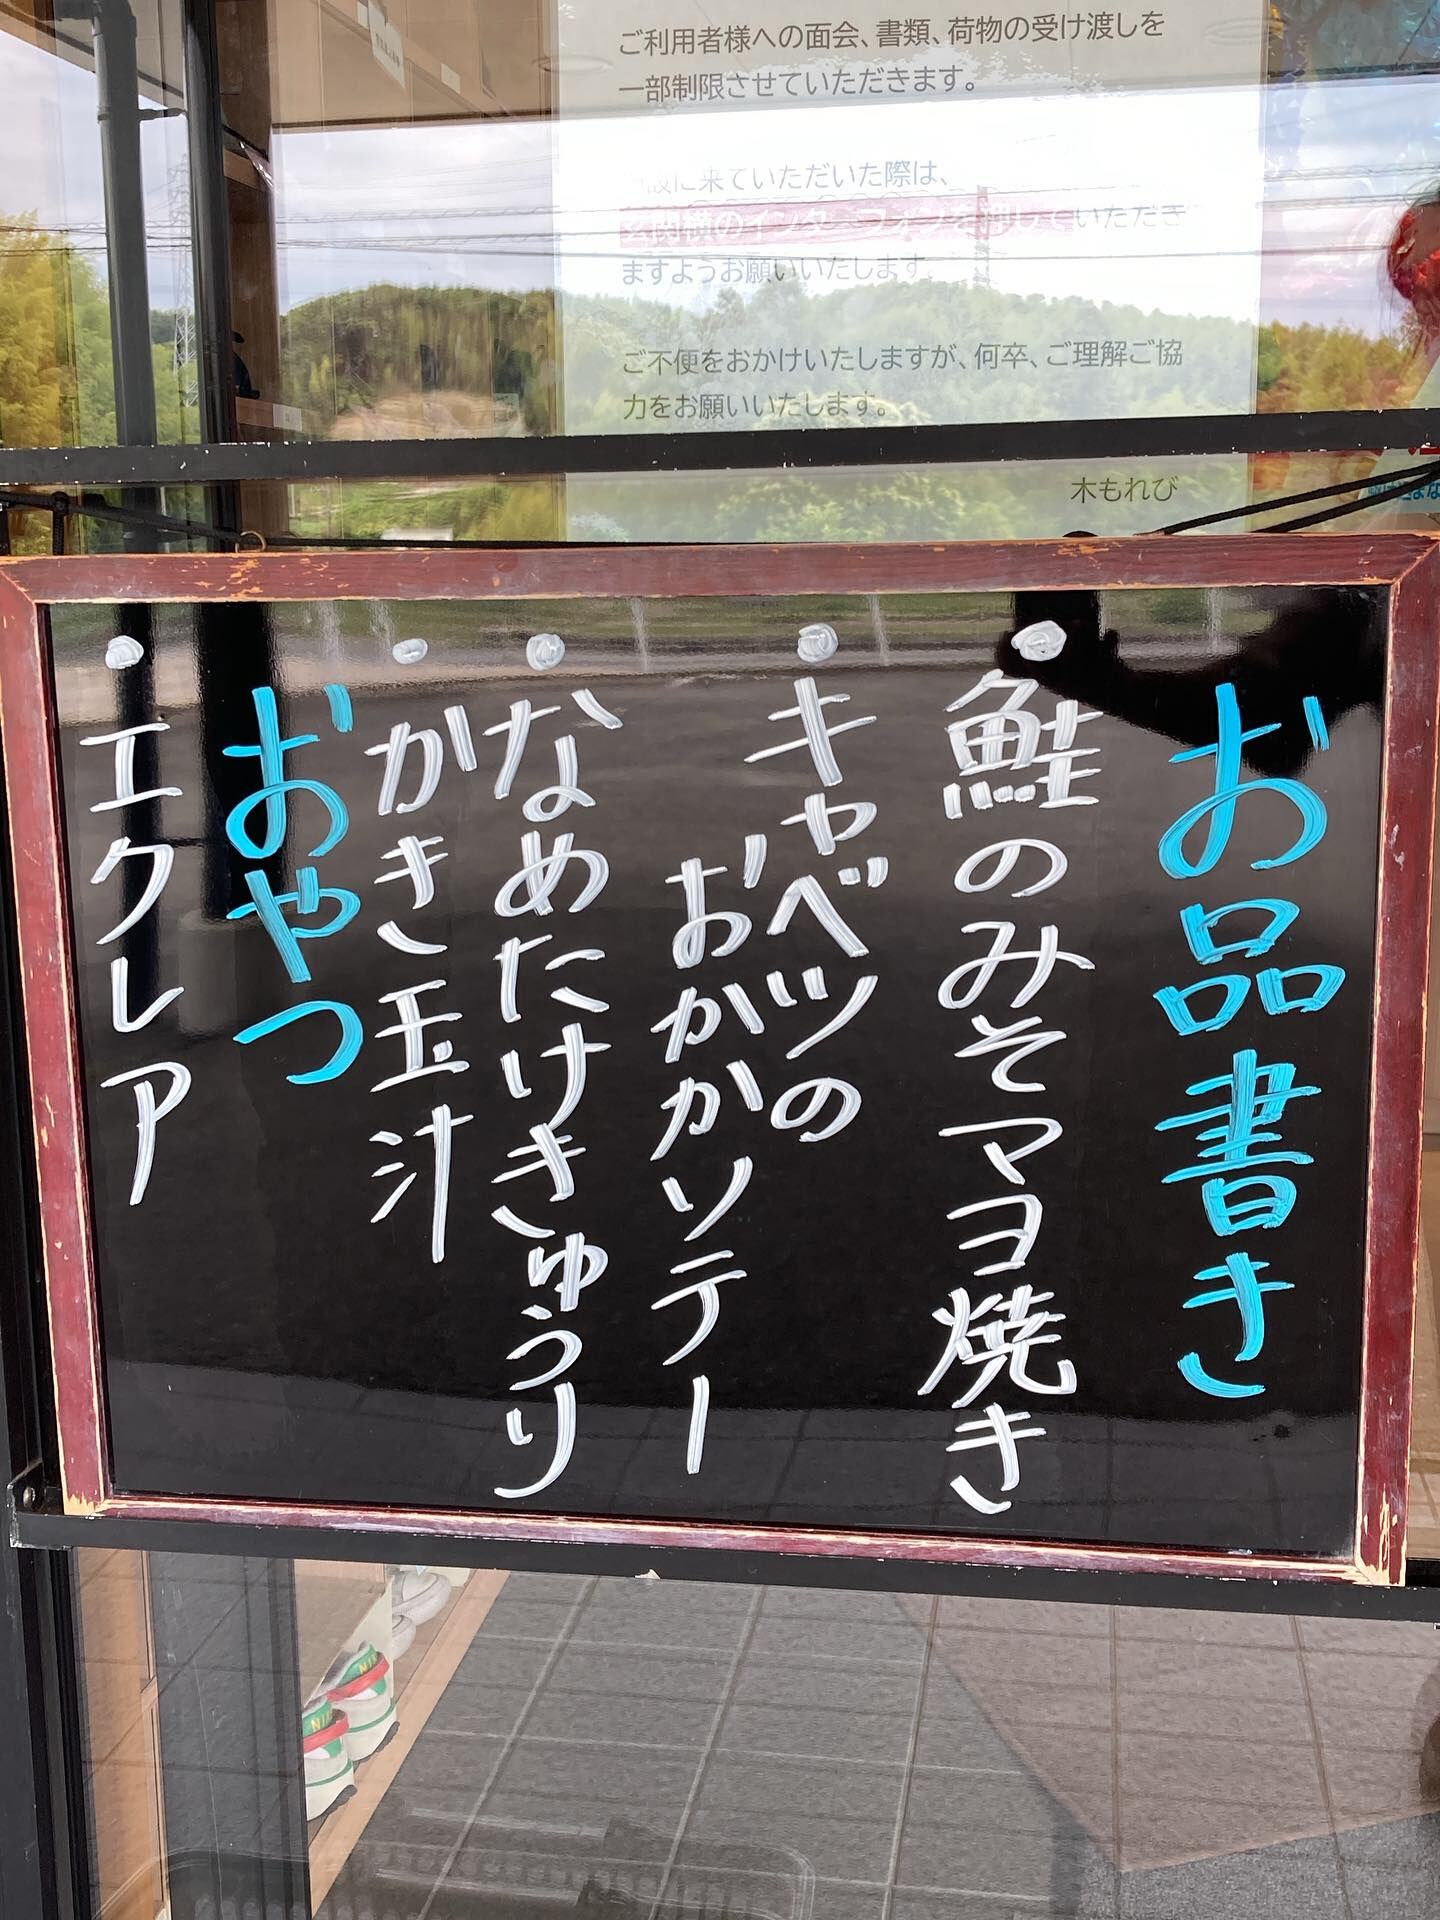 ご利用者様への面会、書類、荷物の受け渡しを
一部制限させていただきます。
に来ていただいた際は、
玄関横のインターフォンを押していただき
ますようお願いいたします。
ご不便をおかけいたしますが、何卒、ご理解ご協
力をお願いいたします。
木もれび
お品書き
・鮭のみそマヨ焼き
・キャベツの
おかかソテー
・なめたけきゅうり
・かき玉汁
おやつ
・エクレア